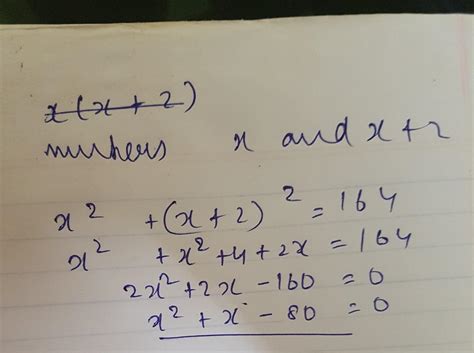 x(x+2)
numbers x and x+2
x² + (x+2)² = 164
x² + x² + 4 + 2x = 164
2x² + 2x - 160 = 0
x² + x - 80 = 0